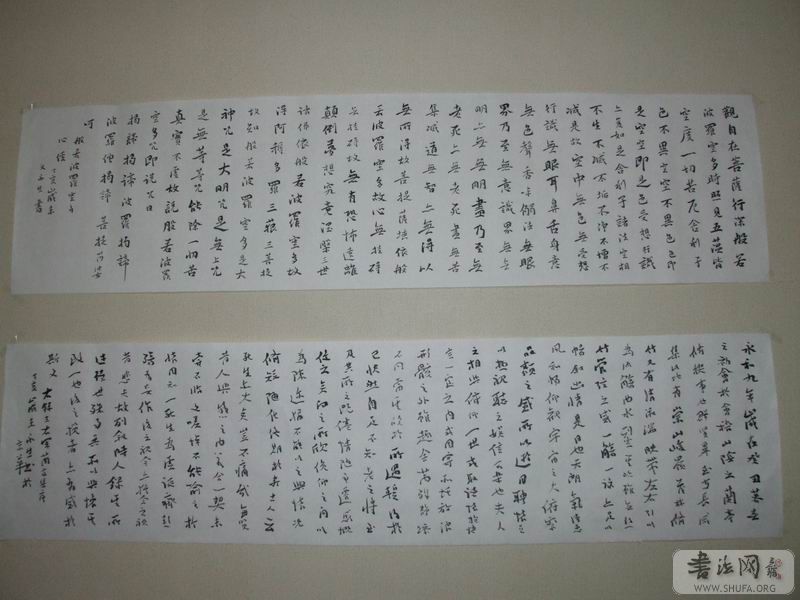 觀自在菩薩行深般若
波羅蜜多時照見五蘊皆
空度一切苦厄舍利子
色不異空空不異色色即
是空空即是色受想行識
亦復如是舍利子諸法空相
不生不滅不垢不淨不增不
減是故空中無色無受想
行識無眼耳鼻舌身意
無色聲香味觸法無眼
界乃至無意識界無無
明亦無無明盡乃至無
老死亦無老死盡無苦
集滅道無智亦無得以
無所得故菩提薩埵依般
若波羅蜜多故心無挂礙
無挂礙故無有恐怖遠離
顛倒夢想究竟涅槃三世
諸佛依般若波羅蜜多故
得阿耨多羅三藐三菩提
故知般若波羅蜜多是大
神咒是大明咒是無上咒
是無等等咒能除一切苦
真實不虛故說般若波羅
蜜多咒即說咒曰
揭諦揭諦波羅揭諦
波羅僧揭諦菩提薩婆
訶
般若波羅蜜多
心經 丁亥歲末
永和九年歲在癸丑暮春
之初會於會稽山陰之蘭亭
脩稧事也群賢畢至少長咸
集此地有崇山峻嶺茂林脩
竹又有清流激湍映帶左右引以
為流觴曲水列坐其次雖無絲
竹管弦之盛一觴一詠亦足以
暢敘幽情是日也天朗氣清惠
風和暢仰觀宇宙之大俯察
品類之盛所以遊目騁懷足
以極視聽之娛信可樂也夫人
之相與俯仰一世或取諸懷抱悟
言一室之內或因寄所託放浪
形骸之外雖趣舍萬殊靜躁
不同當其欣於所遇暫得於
己快然自足不知老之將至
及其所之既倦情隨事遷感慨
係之矣向之所欣俛仰之間以
為陳迹猶不能不以之興懷況
脩短隨化終期於盡古人云
死生亦大矣豈不痛哉每覽
昔人興感之由若合一契未
嘗不臨文嗟悼不能喻之於
懷固知一死生為虛誕齊彭
殤為妄作後之視今亦猶今之視
昔悲夫故列敘時人錄其所
述雖世殊事異所以興懷其
致一也後之攬者亦有感於
斯文
丁亥歲末
书法网
WWW.SHUFA.ORG